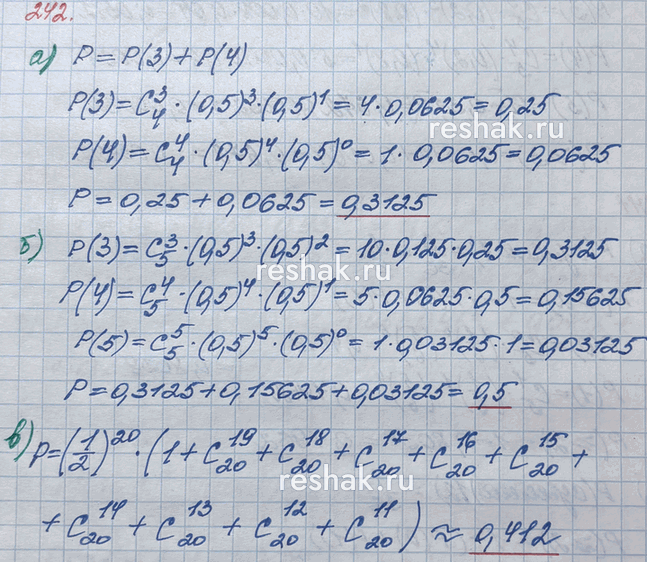 242.
а) P = P(3) + P(4)
P(3) = C₄³ · (0,5)³ · (0,5)¹ = 4 · 0,0625 = 0,25
reshak.ru
P(4) = C₄⁴ · (0,5)⁴ · (0,5)⁰ = 1 · 0,0625 = 0,0625
P = 0,25 + 0,0625 = 0,3125
б) P(3) = C₅³ · (0,5)³ · (0,5)² = 10 · 0,125 · 0,25 = 0,3125
reshak.ru
P(4) = C₅⁴ · (0,5)⁴ · (0,5)¹ = 5 · 0,0625 · 0,5 = 0,15625
P(5) = C₅⁵ · (0,5)⁵ · (0,5)⁰ = 1 · 0,03125 · 1 = 0,03125
P = 0,3125 + 0,15625 + 0,03125 = 0,5
в) P = (1/2)²⁰ · (1 + C₂₀¹⁹ + C₂₀¹⁸ + C₂₀¹⁷ + C₂₀¹⁶ + C₂₀¹⁵ +
reshak.ru
+ C₂₀¹⁴ + C₂₀¹³ + C₂₀¹² + C₂₀¹¹) ≈ 0,412